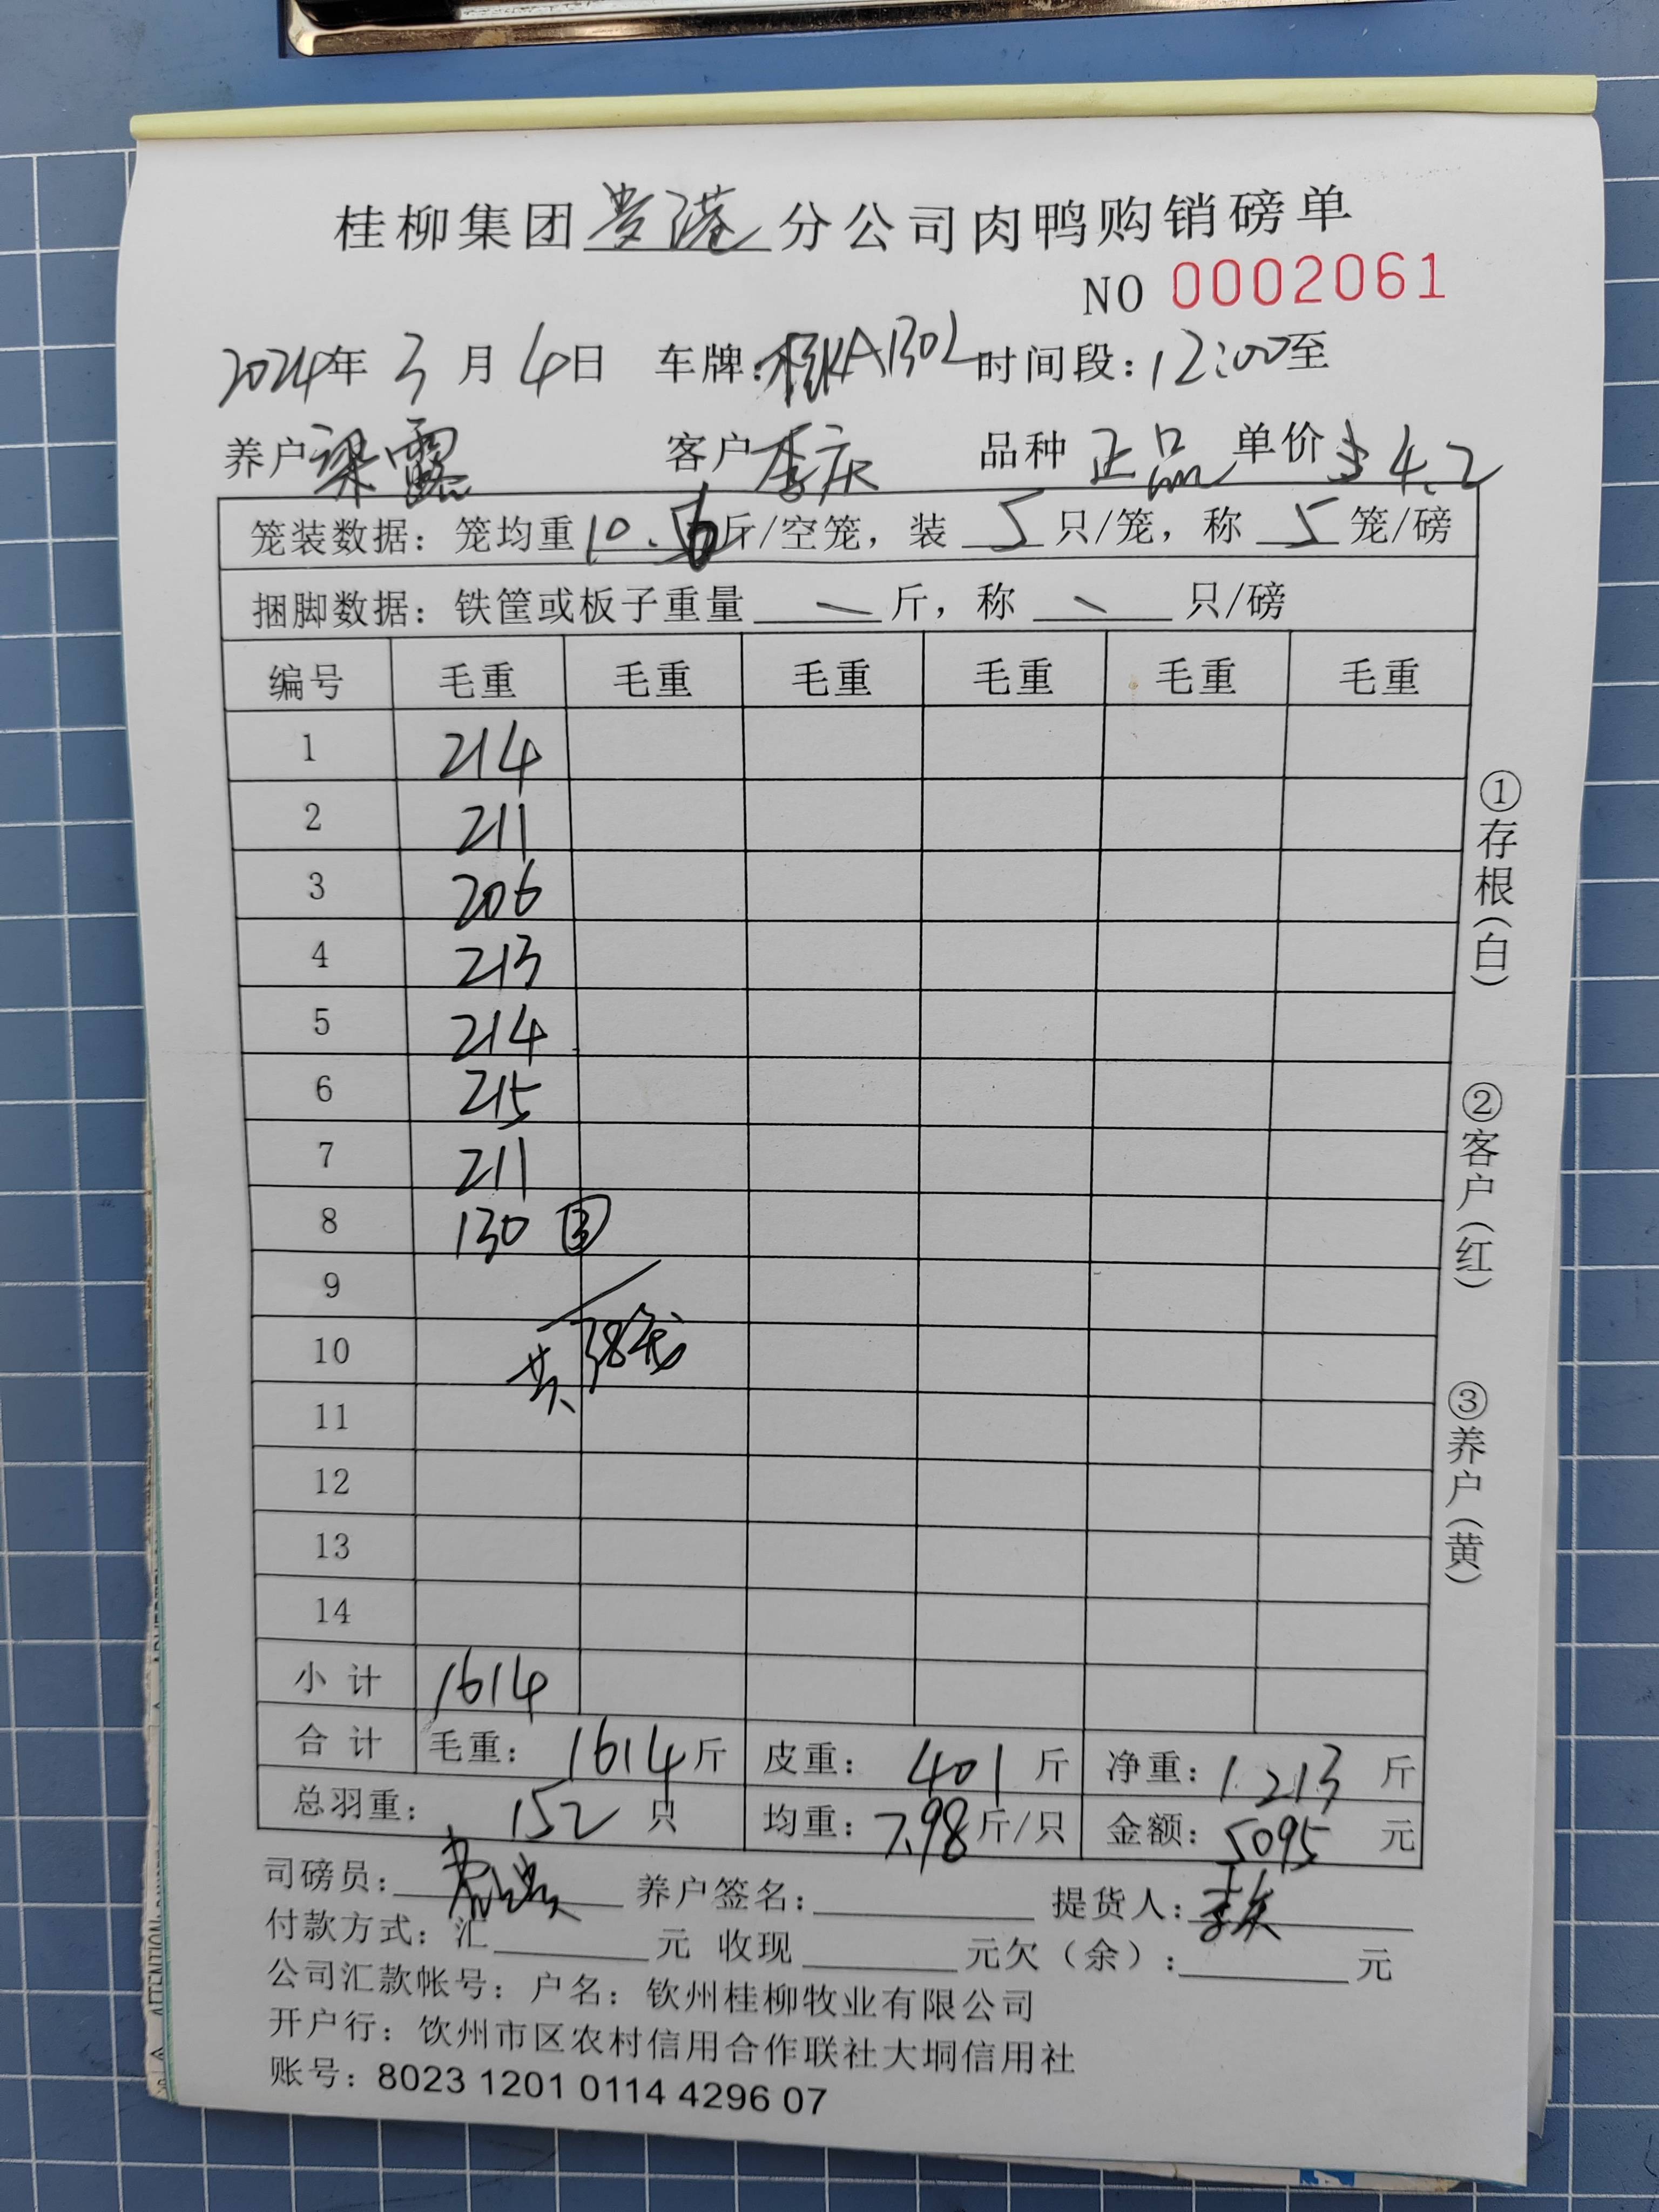 桂柳集团贵港分公司肉鸭购销磅单
NO 0002061
2024年 3 月 4 日 车牌：桂KA1302 时间段：12:00至
养户 梁露 客户 李庆 品种 正品 单价 4.2
笼装数据：笼均重 10.6 斤/空笼，装 5 只/笼，称 5 笼/磅
捆脚数据：铁筐或板子重量 斤，称 只/磅
编号 毛重 毛重 毛重 毛重 毛重 毛重
1 214
2 211
3 206
4 213
5 214
6 215
7 211
8 130 ③
9
10 共38笼
11
12
13
14
小 计 1614
合 计 毛重：1614斤 皮重：401斤 净重：1213斤
总羽重：152 只 均重：7.98斤/只 金额：5095元
司磅员： 养户签名： 提货人：李庆
付款方式：汇 元 收现 元欠（余）： 元
公司汇款帐号：户名：钦州桂柳牧业有限公司
开户行：饮州市区农村信用合作联社大垌信用社
账号：8023 1201 0114 4296 07
①存根（白）
②客户（红）
③养户（黄）
ATTENTION